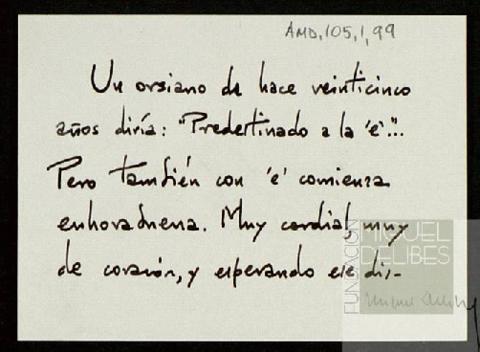 AMD,105,1,99
Un orsiano de hace veinticinco
años diría: "Predestinado a la 'e'"...
Pero también con 'e' comienza
enhorabuena. Muy cordial, muy
de corazón, y esperando ese dis-
FUNDACIÓN
MIGUEL
DELIBES